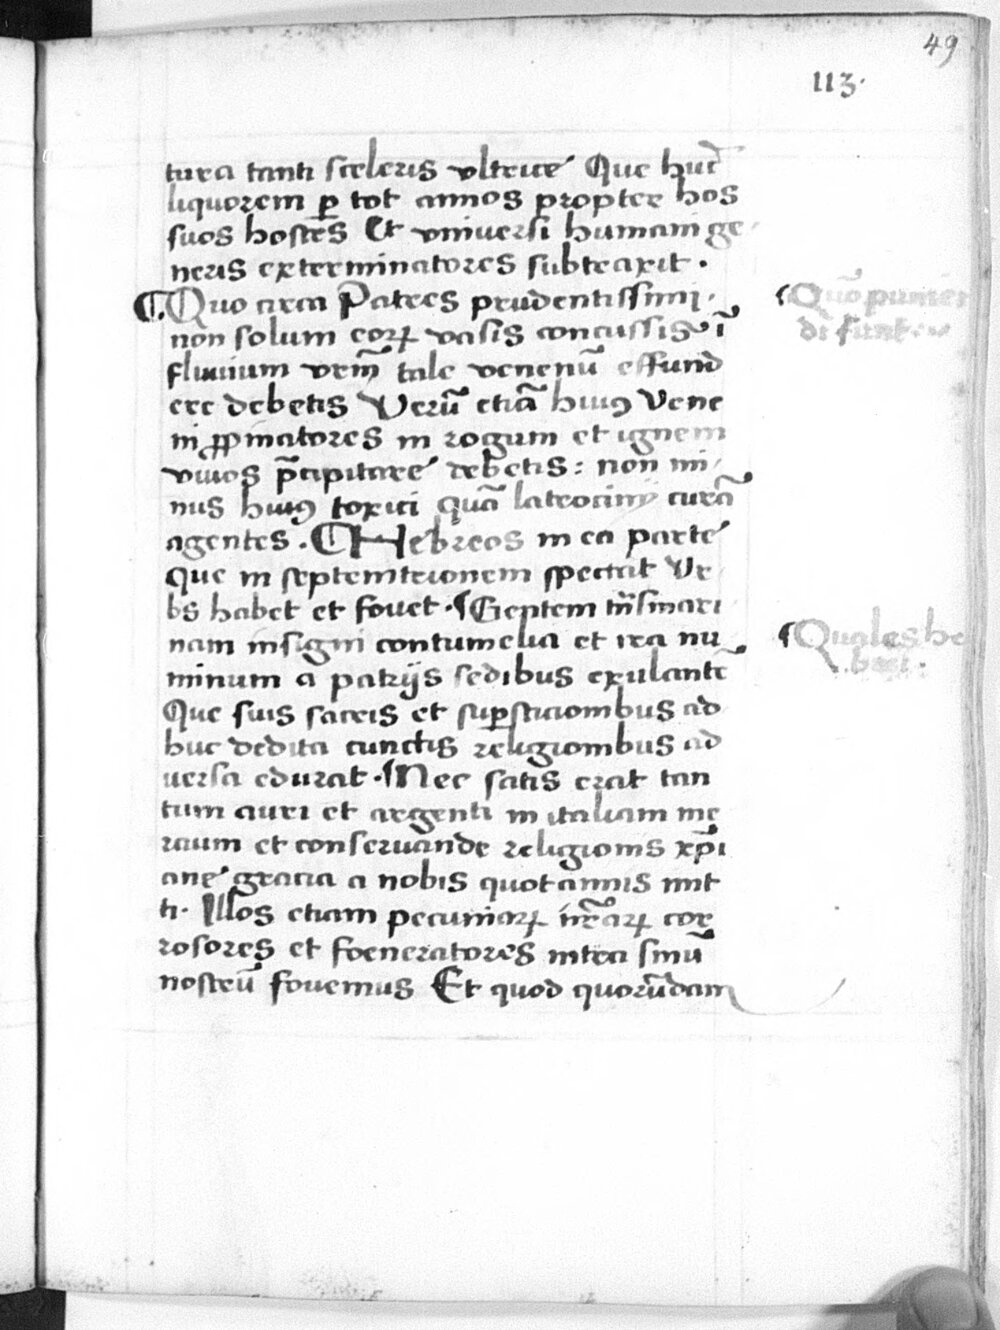 49
113.
tura tanti sceleris vltrice Que hūc
liquorem ꝑ tot annos propter hos
suos hostēs Et vniuersi humani ge
neris exterminatores subtraxit.
¶ Quo circa Patres prudentissimi.
non solum eoꝝ vasis concussis ī
fluuium vrm̄ tale venenū effund
ere debetis Verū etiā huiꝯ Vene
ni ꝓpinatores in rogum et ignem
viuos p̄cipitare debetis: non mi
nus huiꝯ toxici quā latrocinij curā
agentes. ¶ Hebreos in ea parte
que in septemtrionem spectat Vr
bs habet et fouet. Gentem tn̄smari
nam insigni contumelia et ira nu
minum a patrijs sedibus exulantē
Que suis sacris et suꝑsticionibus ad
huc dedita cunctis religionibus ad
uersa edurat. Nec satis erat tan
tum auri et argenti in italiam me
raum et conseruande religionis xp̄i
ane gracia a nobis quotannis mit
ti. Illos etiam pecuniaꝝ nr̄aꝝ cor
rosores et foeneratores intra sinū
nostrū fouemus Et quod quorūdam
Quō puniēn
di sunt
Quales he
brei.